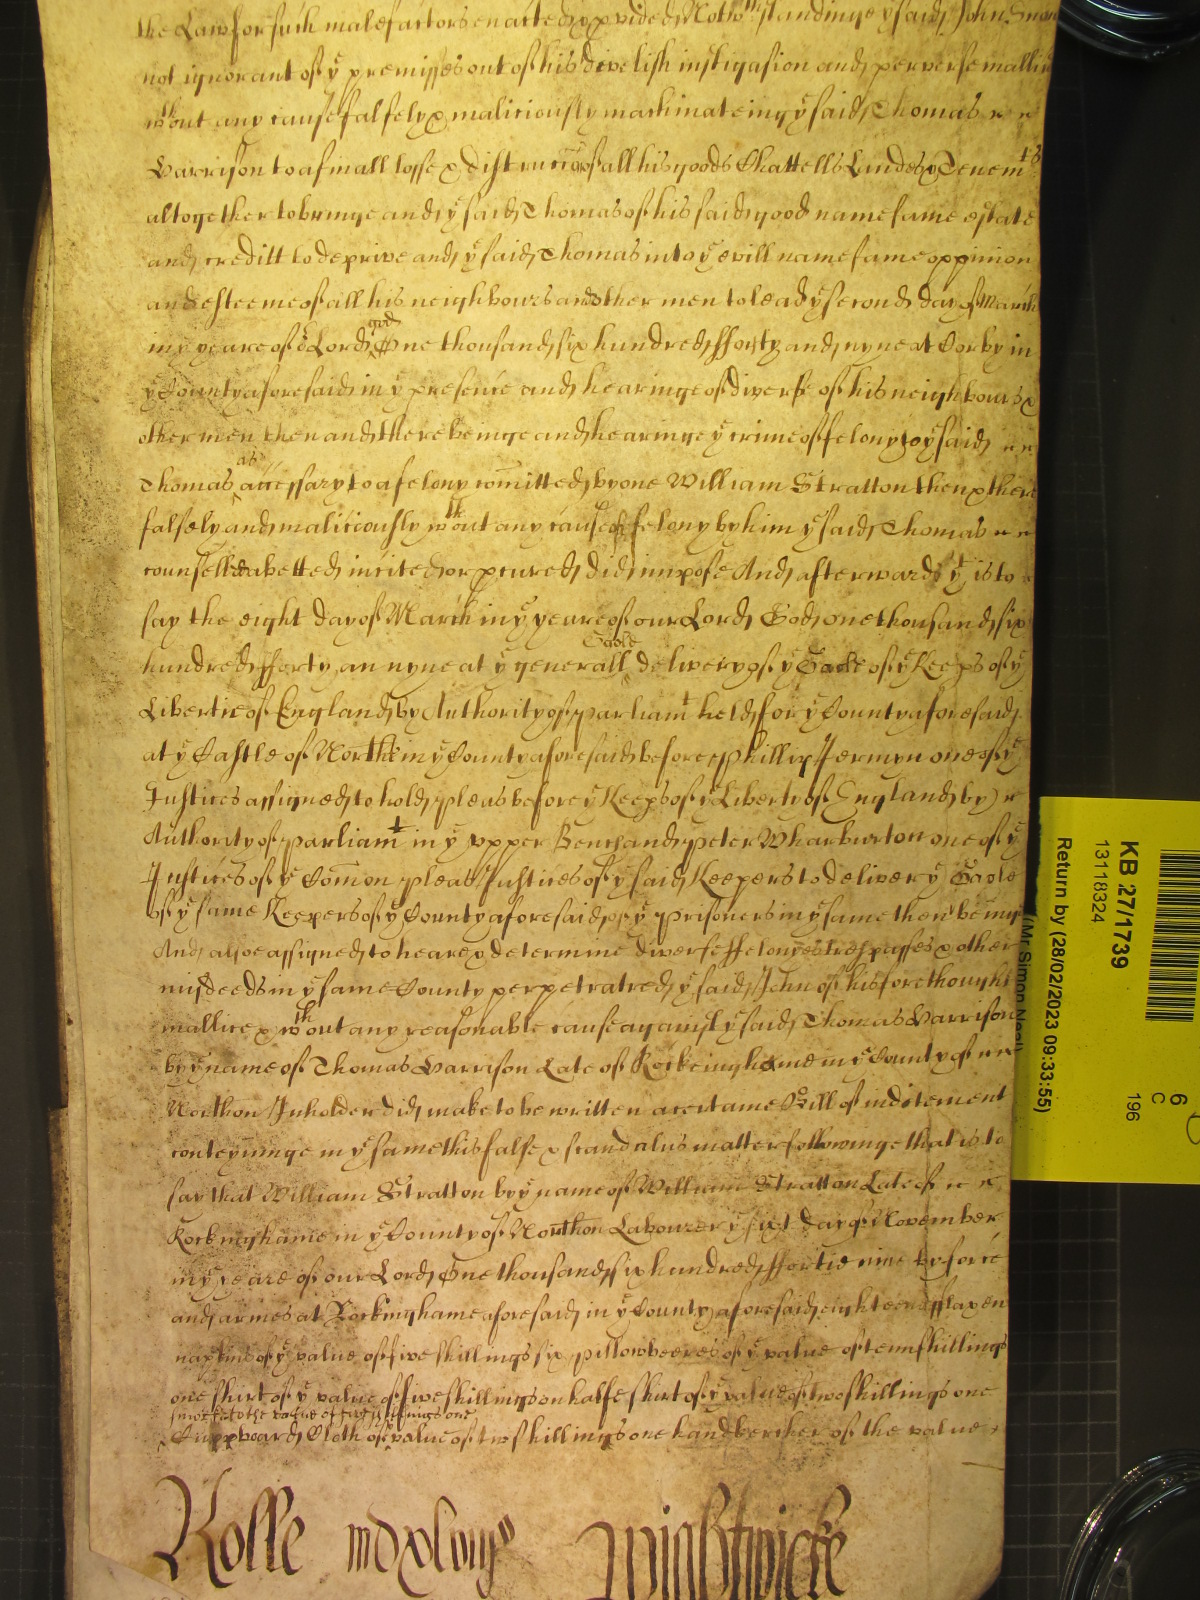 the Law for such malefactors enacted & p[ro]vided Notw^th standinge y^e said John
not ignorant of y^e premisses out of his divelish instigasion and perverse mallice
w^th out any cause falsely & maliciously machinateinge y^e said Thomas
Varrison to a small losse & distruccon of all his goods Chattells Landes & Tenem^ts
altogether to bringe and y^e said Thomas of his said good name fame estate
and creditt to deprive and y^e said Thomas into y^e evill name fame oppinion
and esteeme of all his neighbours and other men to lead y^e second day of March
in y^e yeare of o^r Lord god One thousand six hundred fforty and nyne at Corby in
y^e County aforesaid in y^e presence and hearinge of diverse of his neighbours &
other men then and there beinge and hearinge y^e crime of felony to y^e said
Thomas as accessary to a felony comitted by one William Stratton then & there
falsely and maliciously w^th out any cause of felony by him y^e said Thomas
counselled abetted incited or p[ro]cured did impose And afterwards y^t is to
say the eight day of March in y^e yeare of our Lord God one thousand six
hundred fforty an nyne at y^e generall Gaole delivery of y^e Gaole of y^e Keeps of y^e
Libertie of England by Authority of parliam^t held for y^e County aforesaid
at y^e Castle of North in y^e County aforesaid before Phillip Jermyn one of y^e
Justices assigned to hold pleas before y^e Keeps of y^e Liberty of England by
Authority of parliam^t in y^e upper Bench and Peter Wharburton one of y^e
Justices of y^e Comon pleas Justices of y^e said Keepers to deliver y^e Gaole
of y^e same Keepers of y^e County aforesaid of y^e prisoners in y^e same then being
And alsoe assigned to heare & determine diverse ffelonyes trespasses & other
misdeeds in y^e same County perpetrated y^e said John of his forethought
mallice & w^th out any reasonable cause against y^e said Thomas Varrison
by y^e name of Thomas Varrison Late of Rockinghame in y^e County of
Northon Inholder did make to be written a certaine Bill of inditement
conteyninge in y^e same this false & scandalus matter followinge that is to
say that William Stratton by y^e name of William Stratton Late of
Rockinghame in y^e County of Northon Labourer y^e sixt day of November
in y^e yeare of our Lord One thousand six hundred ffortie nine by force
and armes at Rockinghame aforesaid in y^e County aforesaid eighteene fflaxen
napkins of y^e value of five shillings six pillowbeeres of y^e value of tenn shillings
one shirt of y^e value of five shillings on halfe shirt of y^e value of two shillings one
smocke to the value of five shillings one
Cuppboard Cloth of y^e value of two shillings one handkercher of the value
Rolle mdxlviij^o Wightwicke
KB 27/1739
13118324
Return by (28/02/2023 09:33:55)
(Mr Simon Neal)
6
C
196